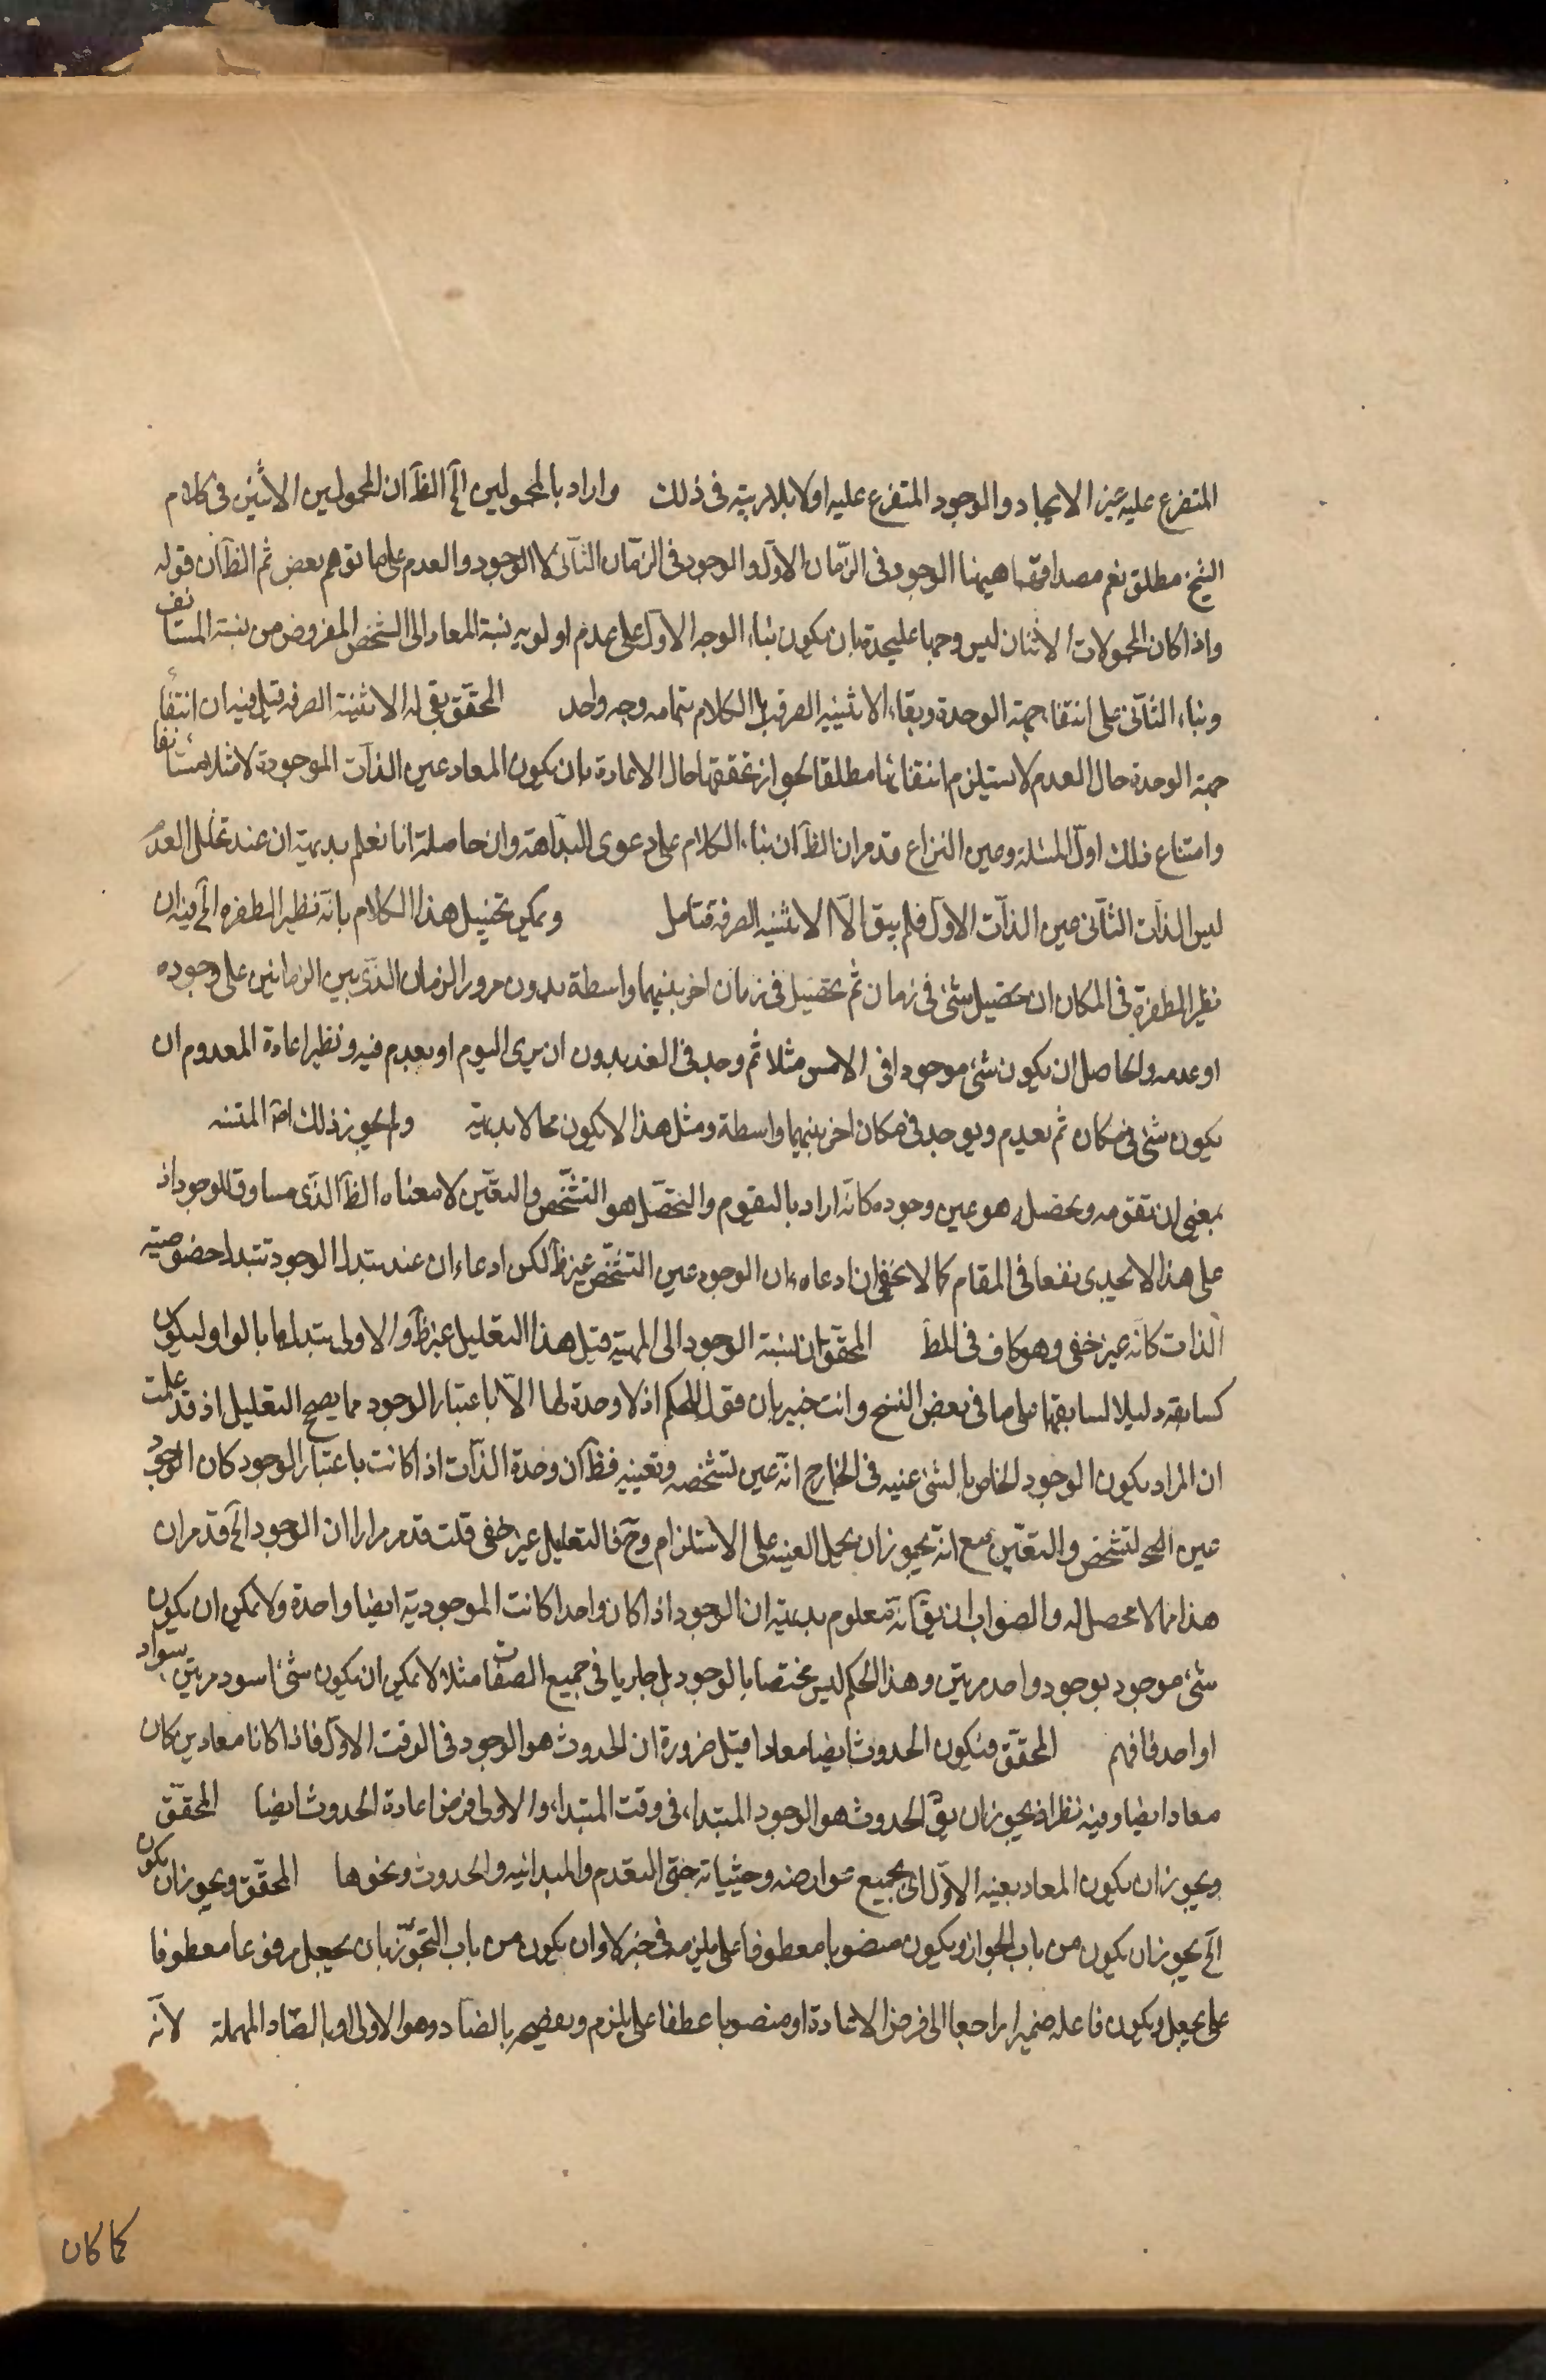 المتفرع عليه غير الايجاد والوجود المتفرع عليه اولا بلا ريبة في ذلك واراد بالمحمولين الخ الظ ان المحمولين الاثنين في كلام
الشيخ مطلق نعم مصداقهما ههنا الوجود في الزمان الاول والوجود في الزمان الثاني لا الوجود والعدم على ما توهم بعض ثم الظ ان قوله
واذا كان المحمولات الاثنان ليس وجها عليحدة بان يكون بناء الوجه الاول على عدم اولويه نسبة المعاد الى الشخص المفروض من نسبة المستانف
وبناء الثاني على انتفاء جهة الوحدة وبقاء الاثنينيه الصرفه بل الكلام بتمامه وجه واحد المحقق بقى له الاثنينية الصرفه قيل فيه ان انتفاء
جهة الوحدة حال العدم لا يستلزم انتفائها مطلقا لجواز تحققها حال الاعادة بان يكون المعاد عين الذات الموجودة لا مثلا مستانفا
وامتناع ذلك اول المسئلة وعين النزاع قد مر ان الظ ان بناء الكلام على دعوى البداهة وان حاصله انا نعلم بديهة ان عند تخلل العدم
ليس الذات الثاني عين الذات الاول فلم يبق الا الاثنينيه الصرفه فتامل ويمكن تخييل هذا الكلام بانه نظير الطفره الخ فيه ان
نظير الطفرة في المكان ان يحصل شئ في زمان ثم يحصل في زمان اخر بينهما واسطة بدون مرور الزمان الذي بين الزمانين على وجوده
او عدمه والحاصل ان يكون شئ موجودا في الامس مثلا ثم وجد في الغد بدون ان يرى اليوم او يعدم فيه ونظير اعادة المعدوم ان
يكون شئ في مكان ثم يعدم ويوجد في مكان اخر بينهما واسطة ومثل هذا لا يكون محالا بديهة ولم يجوز ذلك
بمعنى ان تقومه وتحصله هو عين وجوده كانه اراد بالتقوم والتحصل هو التشخص والتعين لا معناه الظ الذي مساوق للوجود اذ
على هذا لا يجدي نفعا في المقام كما لا يخفى ان ادعاء ان الوجود عين التشخص غير ظ لكن ادعاء ان عند تبدل الوجود تتبدل خصوصية
الذات كانه غير خفي وهو كاف في المط المحقق ان نسبة الوجود الى المهية قيل هذا التعليل غير ظ والاولى تبدلها بالواو ليكون
كسابقه دليلا لسابقها على ما في بعض النسخ وانت خبير بان قول الحكم اذ لا وحدة لها الا باعتبار الوجود مما يصح التعليل اذ قد علمت
ان المراد بكون الوجود الخاص بالشئ عينه في الخارج انه عين تشخصه وتعينه فظ ان وحدة الذات اذا كانت باعتبار الوجود كان الوجود
عين التشخص والتعين مع انه يجوز ان يحمل العينيه على الاستلزام وح فالتعليل غير خفي قلت قد مر مرارا ان الوجود الخ قد مر ان
هذا مما لا محصل له والصواب ان يق انه معلوم بديهة ان الوجود اذا كان واحدا كانت الموجودية ايضا واحدة ولا يمكن ان يكون
شئ موجود بوجود واحد مرتين وهذا الحكم ليس مختصا بالوجود بل جاريا في جميع الصفات مثلا لا يمكن ان يكون شئ اسود مرتين بسواد
واحد فافهم المحقق فيكون الحدوث ايضا معادا قيل ضرورة ان الحدوث هو الوجود في الوقت الاول فاذا كانا معادين كان
معادا ايضا وفيه نظر اذ يجوز ان يق الحدوث هو الوجود المبتداء في وقت المبتداء والاولى فرض اعادة الحدوث ايضا المحقق
ويجوز ان يكون المعاد بعينه الاول اي بجميع عوارضه وحيثياته حتى التقدم والمبدائيه والحدوث ونحوها المحقق ويجوز ان يكون
الخ يجوز ان يكون من باب الجواز ويكون منصوبا معطوفا على يلزم في خبر لا وان يكون من باب التجوز بان يجعل مرفوعا معطوفا
على يجعل ويكون فاعله ضميرا راجعا الى فرض الاعادة او منصوبا عطفا على يلزم بالضاد وهو الاولى او بالصاد المهملة لانه
كما كان